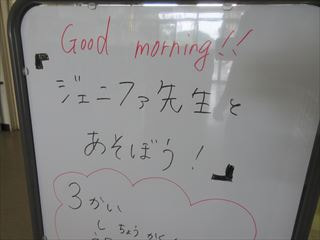 Good morning!!
ジェニファ先生と
あそぼう!
3かい
しちょうかく